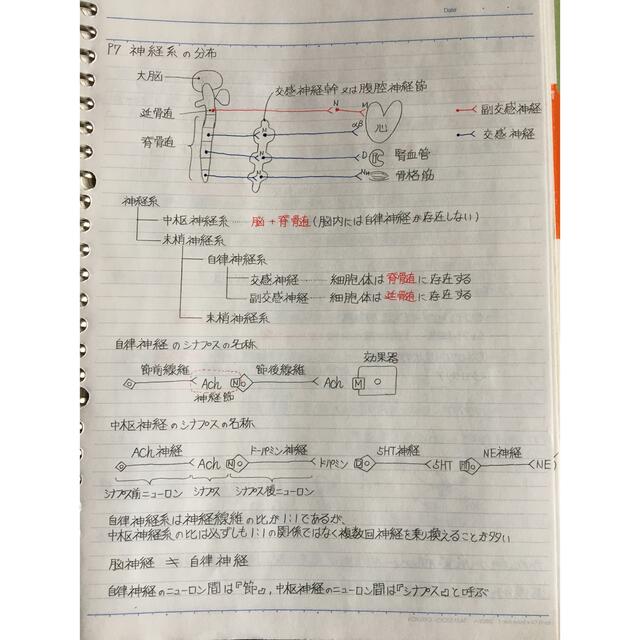 Date
P7 神経系の分布
大脳
交感神経幹又は腹腔神経節
延骨直
N
M
心
副交感神経
脊骨直
N
αβ
交感神経
N
D
腎血管
N
NM
骨格筋
神経系
中枢神経系 …… 脳+脊骨直(脳内には自律神経が存在しない)
末梢神経系
自律神経系
交感神経 …… 細胞体は脊骨直に存在する
副交感神経 …… 細胞体は延骨直に存在する
末梢神経系
自律神経のシナプスの名称
節前線維
節後線維
効果器
Ach
N
Ach
M
神経節
中枢神経のシナプスの名称
ACh神経
ドーパミン神経
5HT神経
NE神経
Ach
N
ドパミン
D
5HT
NE
シナプス前ニューロン
シナプス
シナプス後ニューロン
自律神経系は神経線維の比が1:1であるが、
中枢神経系の比は必ずしも1:1の関係ではなく複数回神経を乗り換えることが多い
脳神経 ≠ 自律神経
自律神経のニューロン間は『節』,中枢神経のニューロン間は『シナプス』と呼ぶ